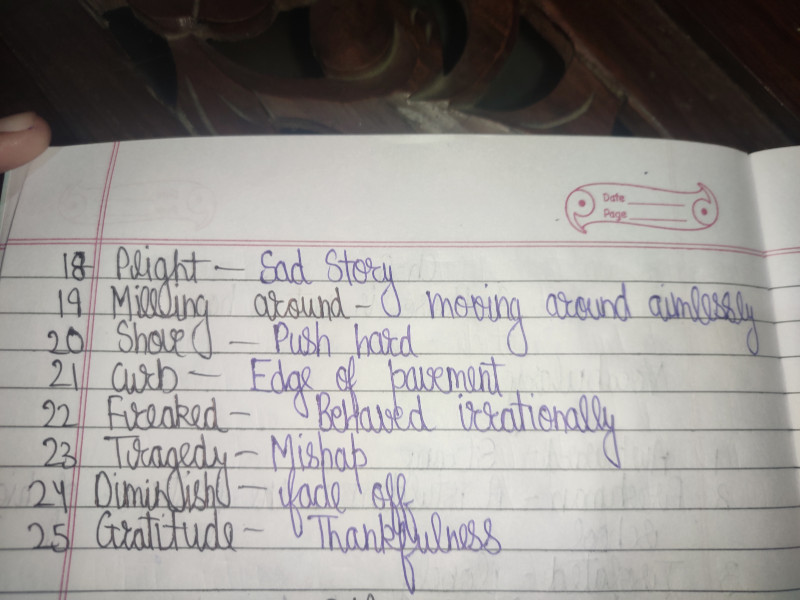 Date
Page
18 Plight – Sad Story
19 Milling around – moving around aimlessly
20 Shove – Push hard
21 Curb – Edge of pavement
22 Freaked – Behaved irrationally
23 Tragedy – Mishap
24 Diminish – fade off
25 Gratitude – Thankfulness